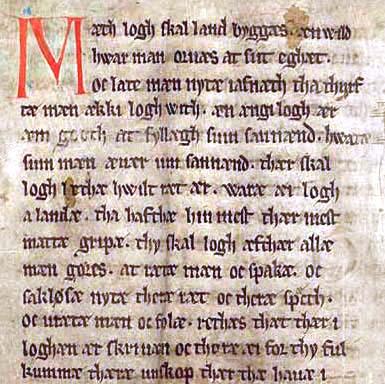 Mæth logh skal land byggæs. æn wild
hwar man oruæs at sitt eghæt.
oc late mæn nytæ iafnæth tha thyrf
tæ mæn ækki logh with. æn ængi logh ær
æm goth at fyllægh sum sannænd. hwaræ
sum mæn æuær um sannænd. thær skal
logh lethæ hwilt ræt ær. waræ æi logh
a landæ. tha hafthæ hin mest thær mest
mattæ gripæ. thy skal logh æfthær allæ
mæn gøres. at rætæ mæn oc spakæ. oc
sakløsæ nytæ theræ ræt oc theræ spech.
oc urætæ mæn oc folæ. rethæs that thær i
loghæn ær skriuan oc thoræ æi for thy ful
kummæ theræ unskop thær the hauæ i